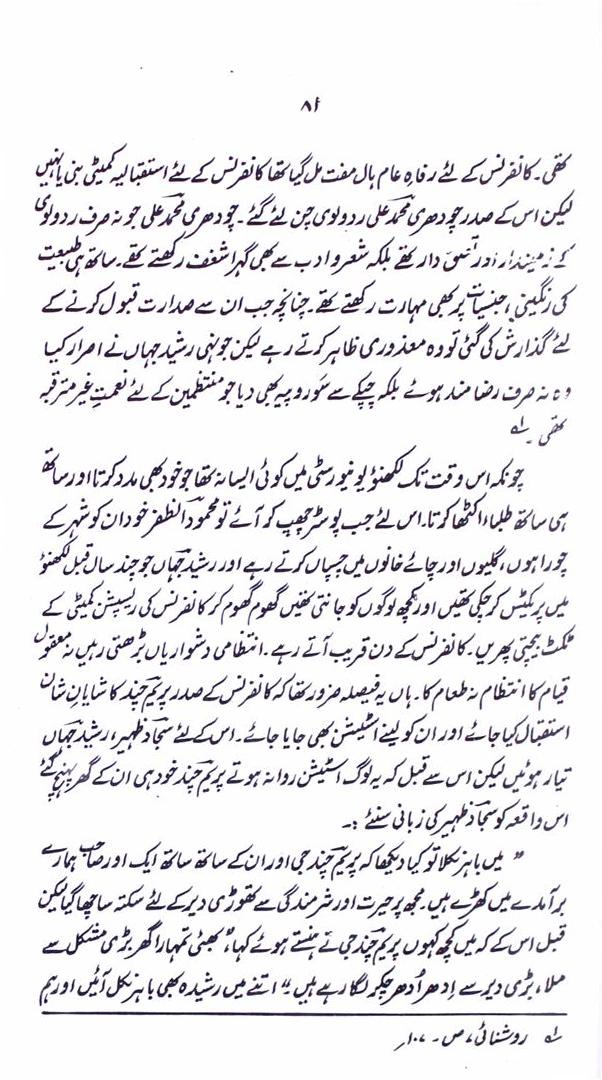 ۸۱
تھی۔ کانفرنس کے لئے رفاہِ عام ہال مفت مل گیا تھا کانفرنس کے لئے استقبالیہ کمیٹی بنی یا نہیں
لیکن اس کے صدر چودھری محمد علی ردولوی چن لئے گئے۔ چودھری محمد علی جو نہ صرف ردولوی
کے زمیندار اور تعلق دار تھے بلکہ شعر و ادب سے بھی گہرا شغف رکھتے تھے۔ ساتھ ہی طبیعت
کی رنگینی، جنسیات پر بھی مہارت رکھتے تھے۔ چنانچہ جب ان سے صدارت قبول کرنے کے
لئے گذارش کی گئی تو وہ معذوری ظاہر کرتے رہے لیکن جونہی رشید جہاں نے اصرار کیا
وہ نہ صرف رضا مند ہوئے بلکہ چپکے سے سَو روپیہ بھی دیا جو منتظمین کے لئے نعمتِ غیر مترقبہ
تھی۔ ؎۱
چونکہ اس وقت تک لکھنؤ یونیورسٹی میں کوئی ایسا نہ تھا جو خود بھی مدد کرتا اور ساتھ
ہی ساتھ طلباء اکٹھا کرتا۔ اس لئے جب پوسٹر چھپ کر آئے تو محمود الظفر خود ان کو شہر کے
چوراہوں، گلیوں اور چائے خانوں میں چسپاں کرتے رہے اور رشید جہاں جو چند سال قبل لکھنؤ
میں پریکٹس کر چکی تھیں اور کچھ لوگوں کو جانتی تھیں گھوم گھوم کر کانفرنس کی ریسپشن کمیٹی کے
ٹکٹ بیچتی پھریں۔ کانفرنس کے دن قریب آتے رہے۔ انتظامی دشواریاں بڑھتی رہیں نہ معقول
قیام کا انتظام نہ طعام کا۔ ہاں یہ فیصلہ ضرور تھا کہ کانفرنس کے صدر پریم چند کا شایانِ شان
استقبال کیا جائے اور ان کو لینے اسٹیشن بھی جایا جائے۔ اس کے لئے سجاد ظہیر، رشید جہاں
تیار ہوئیں لیکن اس سے قبل کہ یہ لوگ اسٹیشن روانہ ہوتے پریم چند خود ہی ان کے گھر پہنچ گئے
اس واقعہ کو سجاد ظہیر کی زبانی سنئے :۔
” میں باہر نکلا تو کیا دیکھا کہ پریم چند جی اور ان کے ساتھ ساتھ ایک اور صاحب ہمارے
برآمدے میں کھڑے ہیں۔ مجھ پر حیرت اور شرمندگی سے تھوڑی دیر کے لئے سکتہ سا چھا گیا لیکن
قبل اس کے کہ میں کچھ کہوں پریم چند جی نے ہنستے ہوئے کہا، ”بھئی تمہارا گھر بڑی مشکل سے
ملا، بڑی دیر سے اِدھر اُدھر چکر لگا رہے ہیں۔“ اتنے میں رشیدہ بھی باہر نکل آئیں اور ہم
؎۱ روشنائی ص۔ ۱۰۷